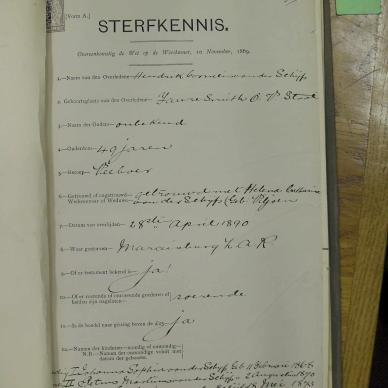 [Vorm A.]
STERFKENNIS.
Overeenkomstig de Wet op de Weeskamer, 10 November, 1869.
1.—Naam van den Overledene—Hendrik Cornelis van der Schyff
2. Geboorteplaats van den Overledene— Smith O. V. Staat
3.—Naam der Ouders—onbekend
4.—Ouderdom—49 jaren
5.—Beroep—Veeboer
6.—Getrouwd of ongetrouwd, Weduwenaar of Weduwe—getrouwd met Helena Catharina
van der Schyff (Geb: Viljoen
7.—Datum van overlijden—28ste April 1890
8.—Waar gestorven—Maraisburg Z. A. R.
9.—Of er testament bekend is—ja!
10.—Of er roerende of onroerende goederen of
heiden zijn nagelaten—roerende
11.—Is de boedel naar gissing boven de £15—ja
12.—Namen der kinderen—mondig of onmondig—
N.B.—Namen der onmondige voluit met
datum der geboorte.
I Johanna Sophia van der Schyff Geb 11 Februarie 1868
II Petrus van der Schyff 2 Augustus 1870
1873